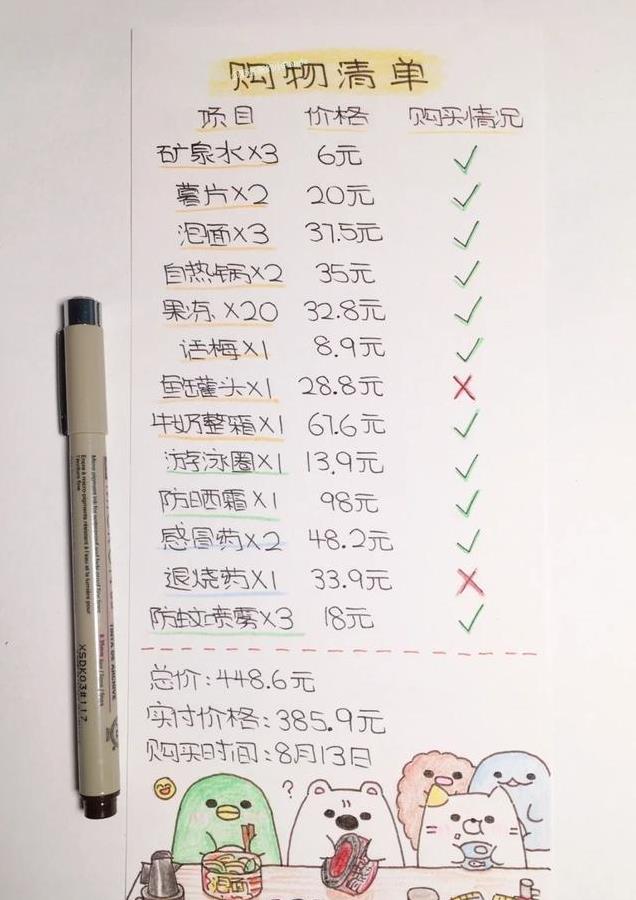 购物清单
项目 价格 购买情况
矿泉水×3 6元 ✓
薯片×2 20元 ✓
泡面×3 37.5元 ✓
自热锅×2 35元 ✓
果冻×20 32.8元 ✓
话梅×1 8.9元 ✓
鱼罐头×1 28.8元 ×
牛奶整箱×1 67.6元 ✓
游泳圈×1 13.9元 ✓
防晒霜×1 98元 ✓
感冒药×2 48.2元 ✓
退烧药×1 33.9元 ×
防蚊喷雾×3 18元 ✓
总价:448.6元
实付价格:385.9元
购买时间:8月13日
?
泡面
XSDK03#117